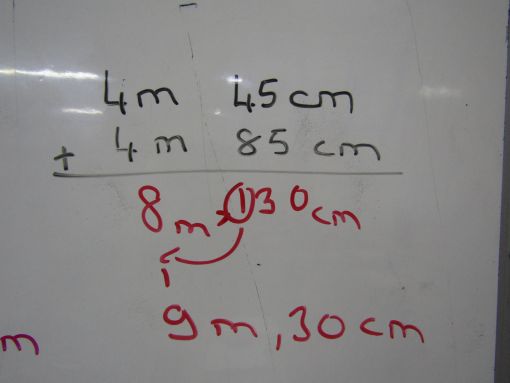 4m 45cm
+ 4m 85 cm
8m 130cm
1
9m, 30cm
m